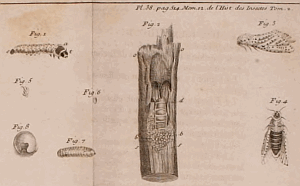 Pl. 38. pag. 314. Mem. 12. de l'Hist. des Insectes Tom. 2.
Fig. 1
Fig. 2
Fig. 3
Fig. 5
Fig. 6
Fig. 4
Fig. 8
Fig. 7